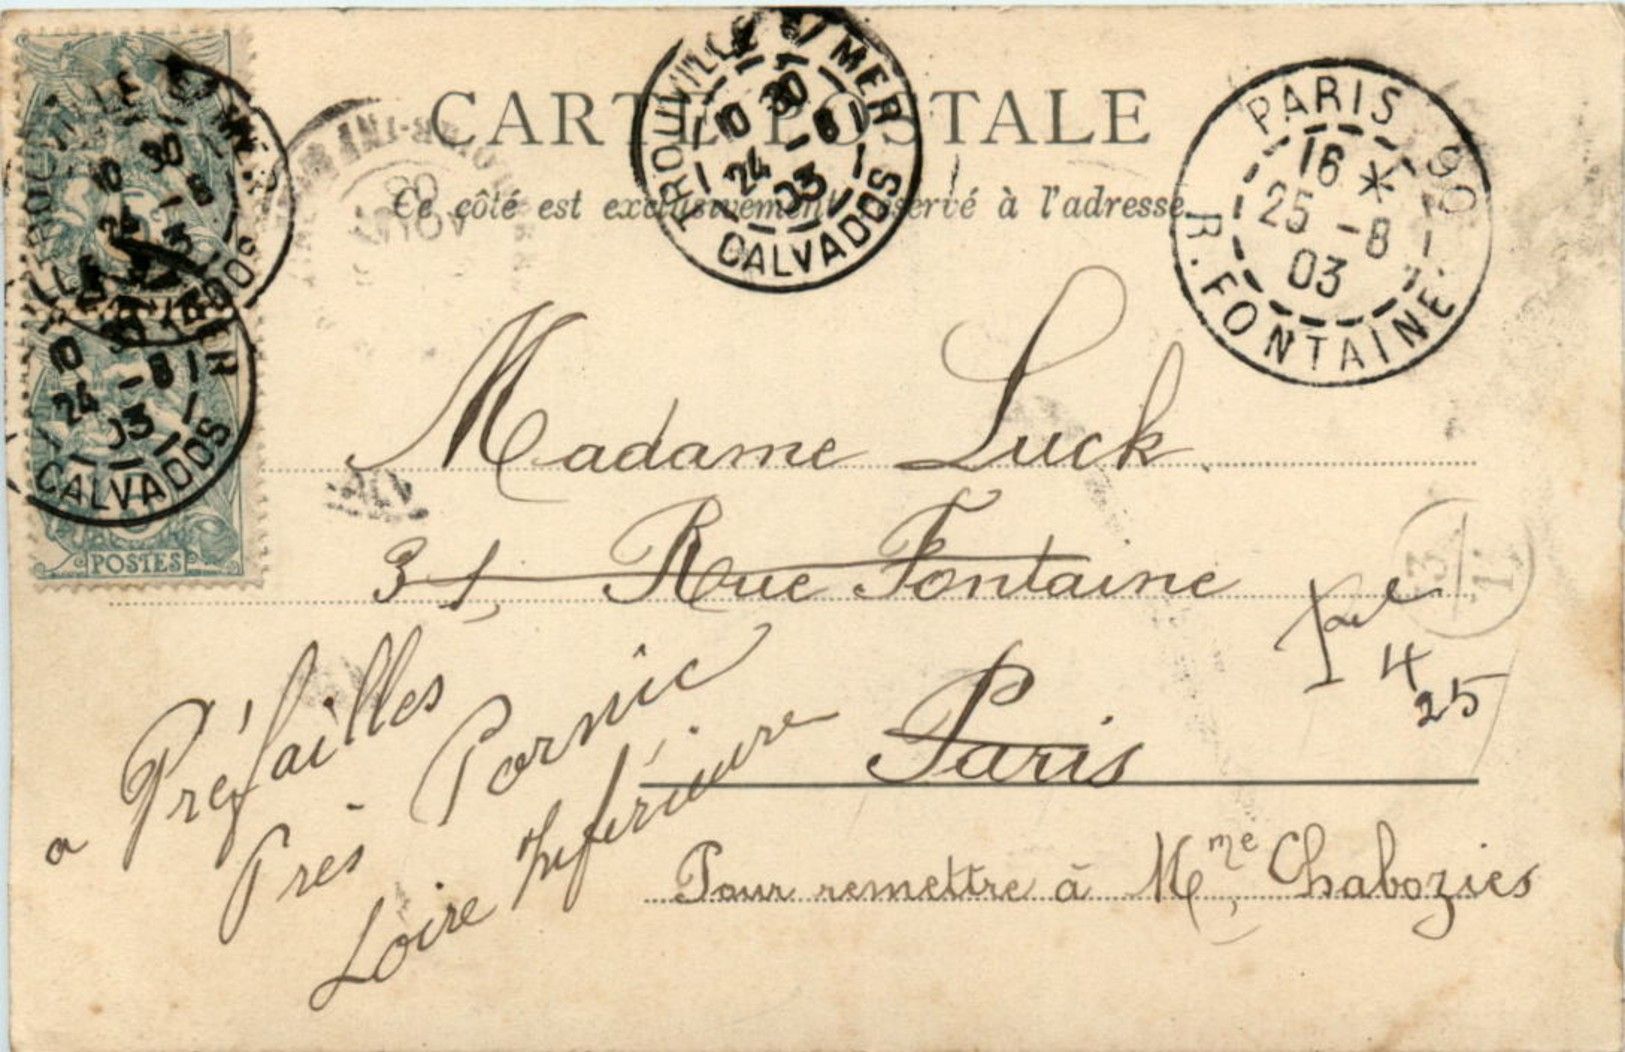 CARTE POSTALE
Ce côté est exclusivement réservé à l'adresse
TROUVILLE S/ MER
10 30
24 -8
03
CALVADOS
PARIS 90
16 *
25 -8
03
R. FONTAINE
TROUVILLE S/ MER
10 30
24 -8
03
CALVADOS
10 30
24 -8
03
CALVADOS
POSTES
Madame Luck
31, Rue Fontaine
Paris
Pour remettre à Mme, Chabozies
a Préfailles
Près Pornic
Loire Inférieure
4
25